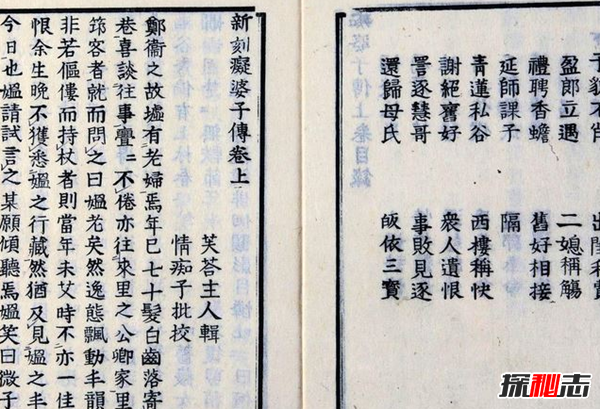 盈郎立遇 二媳稱觴
禮聘香蟾 舊好相接
延師課子 隔
青蓮私谷 西樓稱快
謝絕奮好 衆人遺恨
詈逐慧哥 事敗見逐
還歸母氏 皈依三寶
新刻癡婆子傳卷上
芙荅主人輯
情痴子批校
鄭衛之故墟有老婦焉年已七十髮白齒落寄
巷喜談往事亹亹不倦亦往來里之公卿家里
筇客者就而問之曰媼老矣然逸態飄動丰韻
非若傴僂而持杖者則當年未艾時不亦一佳
恨余生晚不獲悉媼之行藏然猶及見媼之丰
今日也媼請試言之某願傾聽焉媼笑曰微子
探秘志